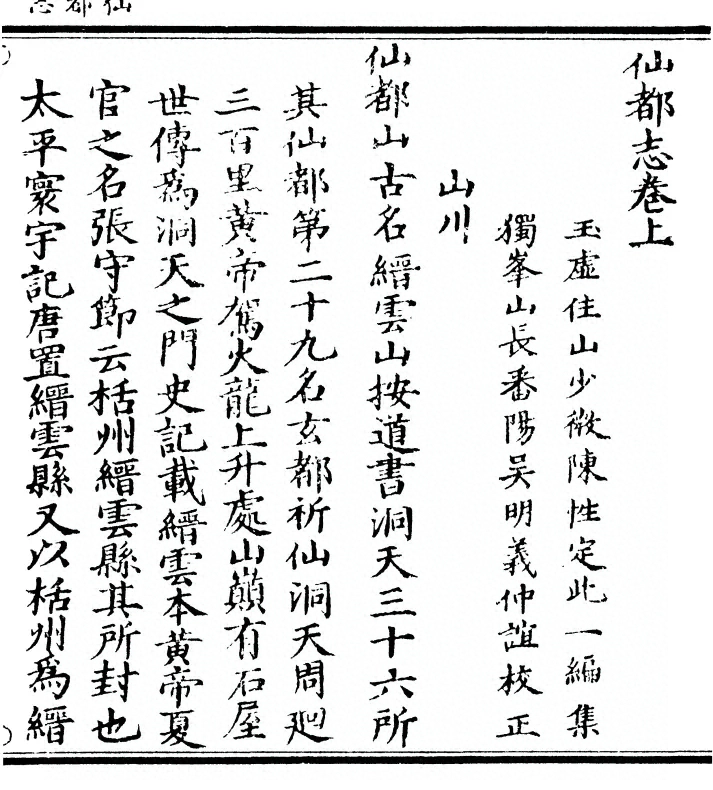 仙都志
仙都志卷上
玉虛住山少微陳性定此一編集
獨峯山長番陽吴明義仲誼校正
山川
仙都山古名縉雲山按道書洞天三十六所
其仙都第二十九名玄都祈仙洞天周廻
三百里黄帝駕火龍上升處山巔有石屋
世傳為洞天之門史記載縉雲本黄帝夏
官之名張守節云栝州縉雲縣其所封也
太平寰宇記唐置縉雲縣又以栝州為縉